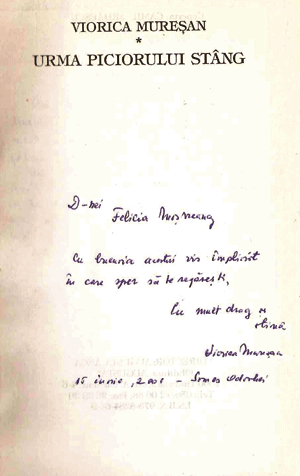 VIORICA MUREȘAN
*
URMA PICIORULUI STÂNG
D-nei
Felicia Moșneang
Cu bucuria acestui vis împlinit
în care sper să te regăsești,
Cu mult drag și
stimă
Viorica Mureșan
15 iunie, 2001 - Someș Odorhei